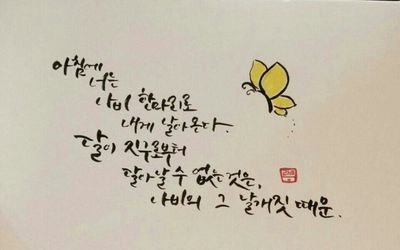 아침에
너는
나비 한마리로
내게 날아온다.
달이 지구로부터
달아날 수 없는 것은,
나비의 그 날개짓 때문.